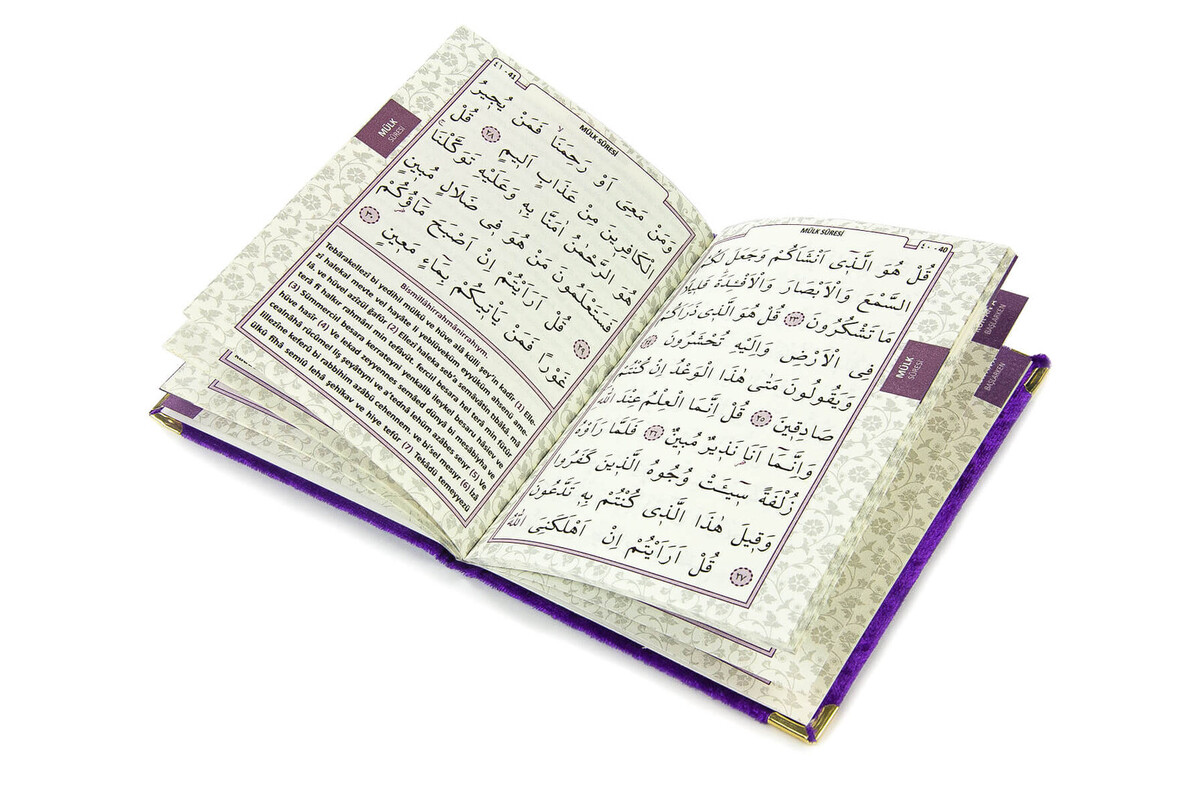 MÜLK SÛRESİ
٤٠ - 40
قُلْ هُوَ الَّذ۪ٓى اَنْشَاَكُمْ وَجَعَلَ لَكُمُ
السَّمْعَ وَالْاَبْصَارَ وَالْاَفْـِٔدَةَ قَل۪يلًا
مَا تَشْكُرُونَ ٢٣ قُلْ هُوَ الَّذ۪ى ذَرَاَكُمْ
فِى الْاَرْضِ وَاِلَيْهِ تُحْشَرُونَ ٢٤
وَيَقُولُونَ مَتٰى هٰذَا الْوَعْدُ اِنْ كُنْتُمْ
صَادِق۪ينَ ٢٥ قُلْ اِنَّمَا الْعِلْمُ عِنْدَ اللّٰهِ
وَاِنَّمَٓا اَنَا۬ نَذ۪يرٌ مُب۪ينٌ ٢٦ فَلَمَّا رَاَوْهُ
زُلْفَةً س۪ٓيـَٔتْ وُجُوهُ الَّذ۪ينَ كَفَرُوا
وَق۪يلَ هٰذَا الَّذ۪ى كُنْتُمْ بِه۪ تَدَّعُونَ
٢٧ قُلْ اَرَاَيْتُمْ اِنْ اَهْلَكَنِىَ اللّٰهُ
MÜLK
SÛRESİ
BAŞLARKEN
BAŞLARKEN
MÜLK SÛRESİ
٤١ - 41
وَمَنْ مَعِىَ اَوْ رَحِمَنَاۙ فَمَنْ يُج۪يرُ
الْكَافِر۪ينَ مِنْ عَذَابٍ اَل۪يمٍ ٢٨ قُلْ
هُوَ الرَّحْمٰنُ اٰمَنَّا بِه۪ وَعَلَيْهِ تَوَكَّلْنَاۚ
فَسَتَعْلَمُونَ مَنْ هُوَ ف۪ى ضَلَالٍ مُب۪ينٍ
٢٩ قُلْ اَرَاَيْتُمْ اِنْ اَصْبَحَ مَٓاؤُ۬كُمْ
غَوْرًا فَمَنْ يَأْت۪يكُمْ بِمَٓاءٍ مَع۪ينٍ ٣٠
MÜLK
SÛRESİ
Bismillâhirrahmânirrahıym.
Tebârakellezî bi yedihil mülkü ve hüve alâ külli şey'in kadîr (1) Elle-
zî halekal mevte vel hayâte li yeblüveküm eyyüküm ahsenü ame-
lâ. ve hüvel azîzül ğafûr (2) Ellezî haleka seb'a semâvâtin tıbâkâ mâ
terâ fî halkır rahmâni min tefâvüt. ferciıl besara hel terâ min fütûr
(3) Sümmerciıl besara kerrateyni yenkalib ileykel besaru hâsiev ve
hüve hasîr (4) Ve lekad zeyyennes semâed dünyâ bi mesâbiyha ve
cealnâhâ rücûmel liş şeyâtıyni ve a'tednâ lehüm azâbes seıyr (5) Ve
lillezîne keferû bi rabbihim azâbü cehennem. ve bi'sel mesıyr (6) İzâ
ülkû fîhâ semiû lehâ şehîkav ve hiye tefûr (7) Tekâdü temeyyezü